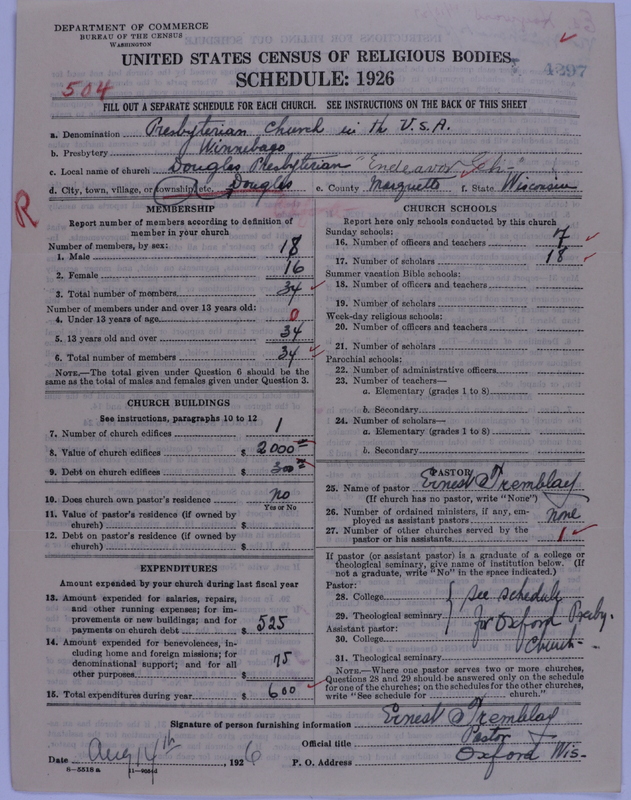 DEPARTMENT OF COMMERCE
BUREAU OF THE CENSUS
WASHINGTON
UNITED STATES CENSUS OF RELIGIOUS BODIES
SCHEDULE: 1926
4297
504
FILL OUT A SEPARATE SCHEDULE FOR EACH CHURCH. SEE INSTRUCTIONS ON THE BACK OF THIS SHEET
a. Denomination Presbyterian Church in the U.S.A.
b. Presbytery Winnebago
c. Local name of church Douglas Presbyterian "Endeavor
d. City, town, village, or township, etc. Douglas e. County Marquette f. State Wisconsin
R
MEMBERSHIP
Report number of members according to definition of
member in your church
Number of members, by sex:
1. Male 18
2. Female 16
3. Total number of members 34
Number of members under and over 13 years old:
4. Under 13 years of age 0
5. 13 years old and over 34
6. Total number of members 34
NOTE.—The total given under Question 6 should be the
same as the total of males and females given under Question 3.
CHURCH BUILDINGS
See instructions, paragraphs 10 to 12
7. Number of church edifices 1
8. Value of church edifices $ 2000
9. Debt on church edifices $ 300
10. Does church own pastor's residence no
Yes or No
11. Value of pastor's residence (if owned by
church) $
12. Debt on pastor's residence (if owned by
church) $
EXPENDITURES
Amount expended by your church during last fiscal year
13. Amount expended for salaries, repairs,
and other running expenses; for im-
provements or new buildings; and for
payments on church debt $ 525
14. Amount expended for benevolences, in-
cluding home and foreign missions; for
denominational support; and for all
other purposes $ 75
15. Total expenditures during year $ 600
CHURCH SCHOOLS
Report here only schools conducted by this church
Sunday schools:
16. Number of officers and teachers 7
17. Number of scholars 18
Summer vacation Bible schools:
18. Number of officers and teachers
19. Number of scholars
Week-day religious schools:
20. Number of officers and teachers
21. Number of scholars
Parochial schools:
22. Number of administrative officers
23. Number of teachers—
a. Elementary (grades 1 to 8)
b. Secondary
24. Number of scholars—
a. Elementary (grades 1 to 8)
b. Secondary
PASTOR
25. Name of pastor Ernest A Tremblay
(If church has no pastor, write "None")
26. Number of ordained ministers, if any, em-
ployed as assistant pastors None
27. Number of other churches served by the
pastor or his assistants 1
If pastor (or assistant pastor) is a graduate of a college or
theological seminary, give name of institution below. (If
not a graduate, write "No" in the space indicated.)
Pastor:
28. College see schedule
29. Theological seminary for Oxford Presby.
Assistant pastor:
30. College Church
31. Theological seminary
NOTE.—Where one pastor serves two or more churches,
Questions 28 and 29 should be answered only on the schedule
for one of the churches; on the schedules for the other churches,
write "See schedule for church."
Signature of person furnishing information Ernest A Tremblay
Official title Pastor
Date Aug 14th, 1926 P. O. Address Oxford Wis.
8—5518a